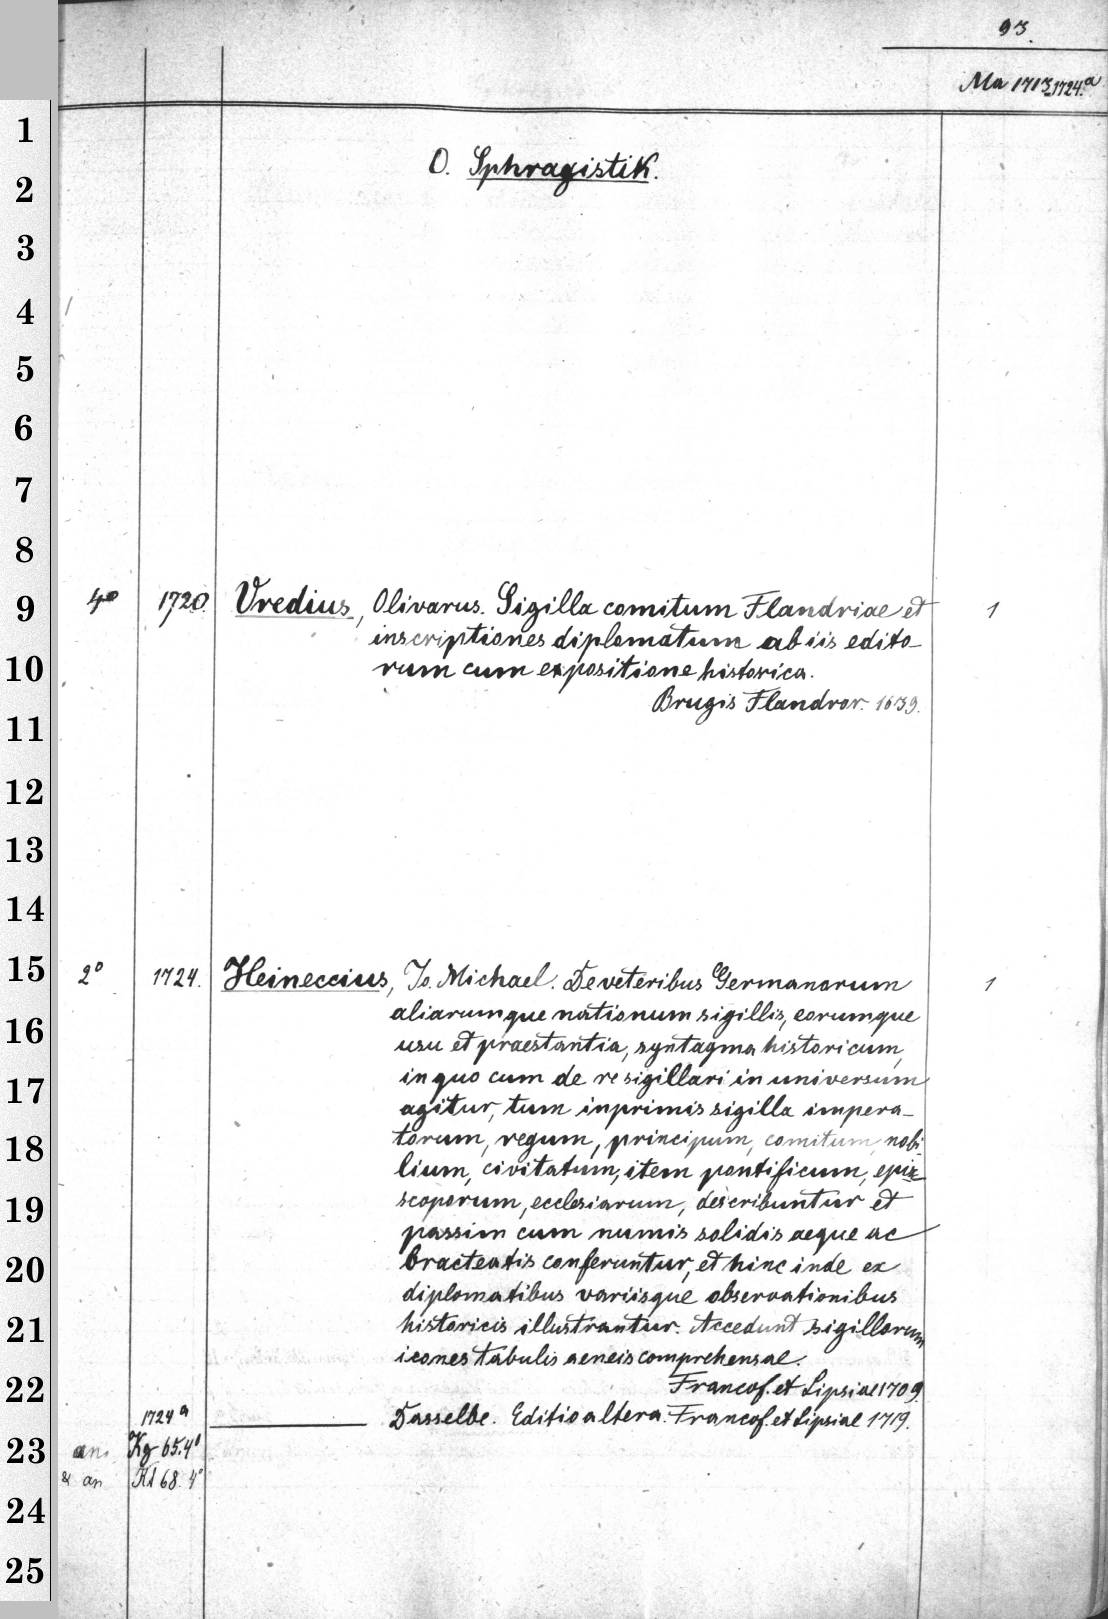 93.
Ma 1713-1724.a
O. Sphragistik.
4° 1720. Vredius, Olivarus. Sigilla comitum Flandriae et 1
inscriptiones diplomatum ab iis edito-
rum cum expositione historica.
Brugis Flandror. 1639.
2° 1724. Heineccius, Jo. Michael. De veteribus Germanorum 1
aliarumque nationum sigillis, eorumque
usu et praestantia, syntagma historicum,
in quo cum de re sigillari in universum
agitur, tum inprimis sigilla impera-
torum, regum, principum, comitum, nobi-
lium, civitatum, item pontificum, epi-
scoporum, ecclesiarum, describuntur et
passim cum numis solidis aeque ac
bracteatis conferuntur, et hinc inde ex
diplomatibus variisque observationibus
historicis illustrantur. Accedunt sigillorum
icones tabulis aeneis comprehensae.
Francof. et Lipsiae 1709.
1724 a Dasselbe. Editio altera. Francof. et Lipsiae 1719.
an Kg 65.4°
& an Kl 68. 4°
1
2
3
4
5
6
7
8
9
10
11
12
13
14
15
16
17
18
19
20
21
22
23
24
25